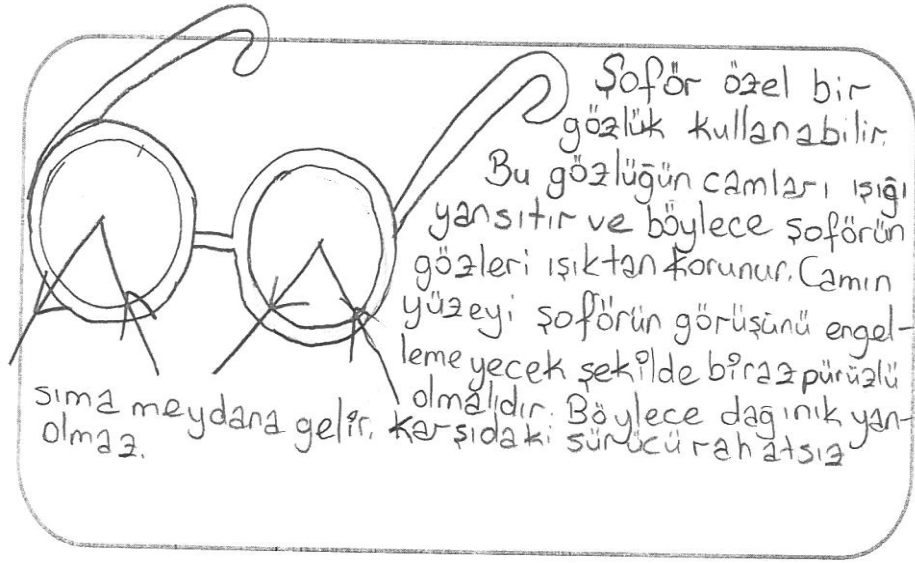 Şoför özel bir
gözlük kullanabilir.
Bu gözlüğün camları ışığı
yansıtır ve böylece şoförün
gözleri ışıktan korunur. Camın
yüzeyi şoförün görüşünü engel-
lemeyecek şekilde biraz pürüzlü
olmalıdır. Böylece dağınık yan-
sıma meydana gelir. Karşıdaki sürücü rahatsız
olmaz.